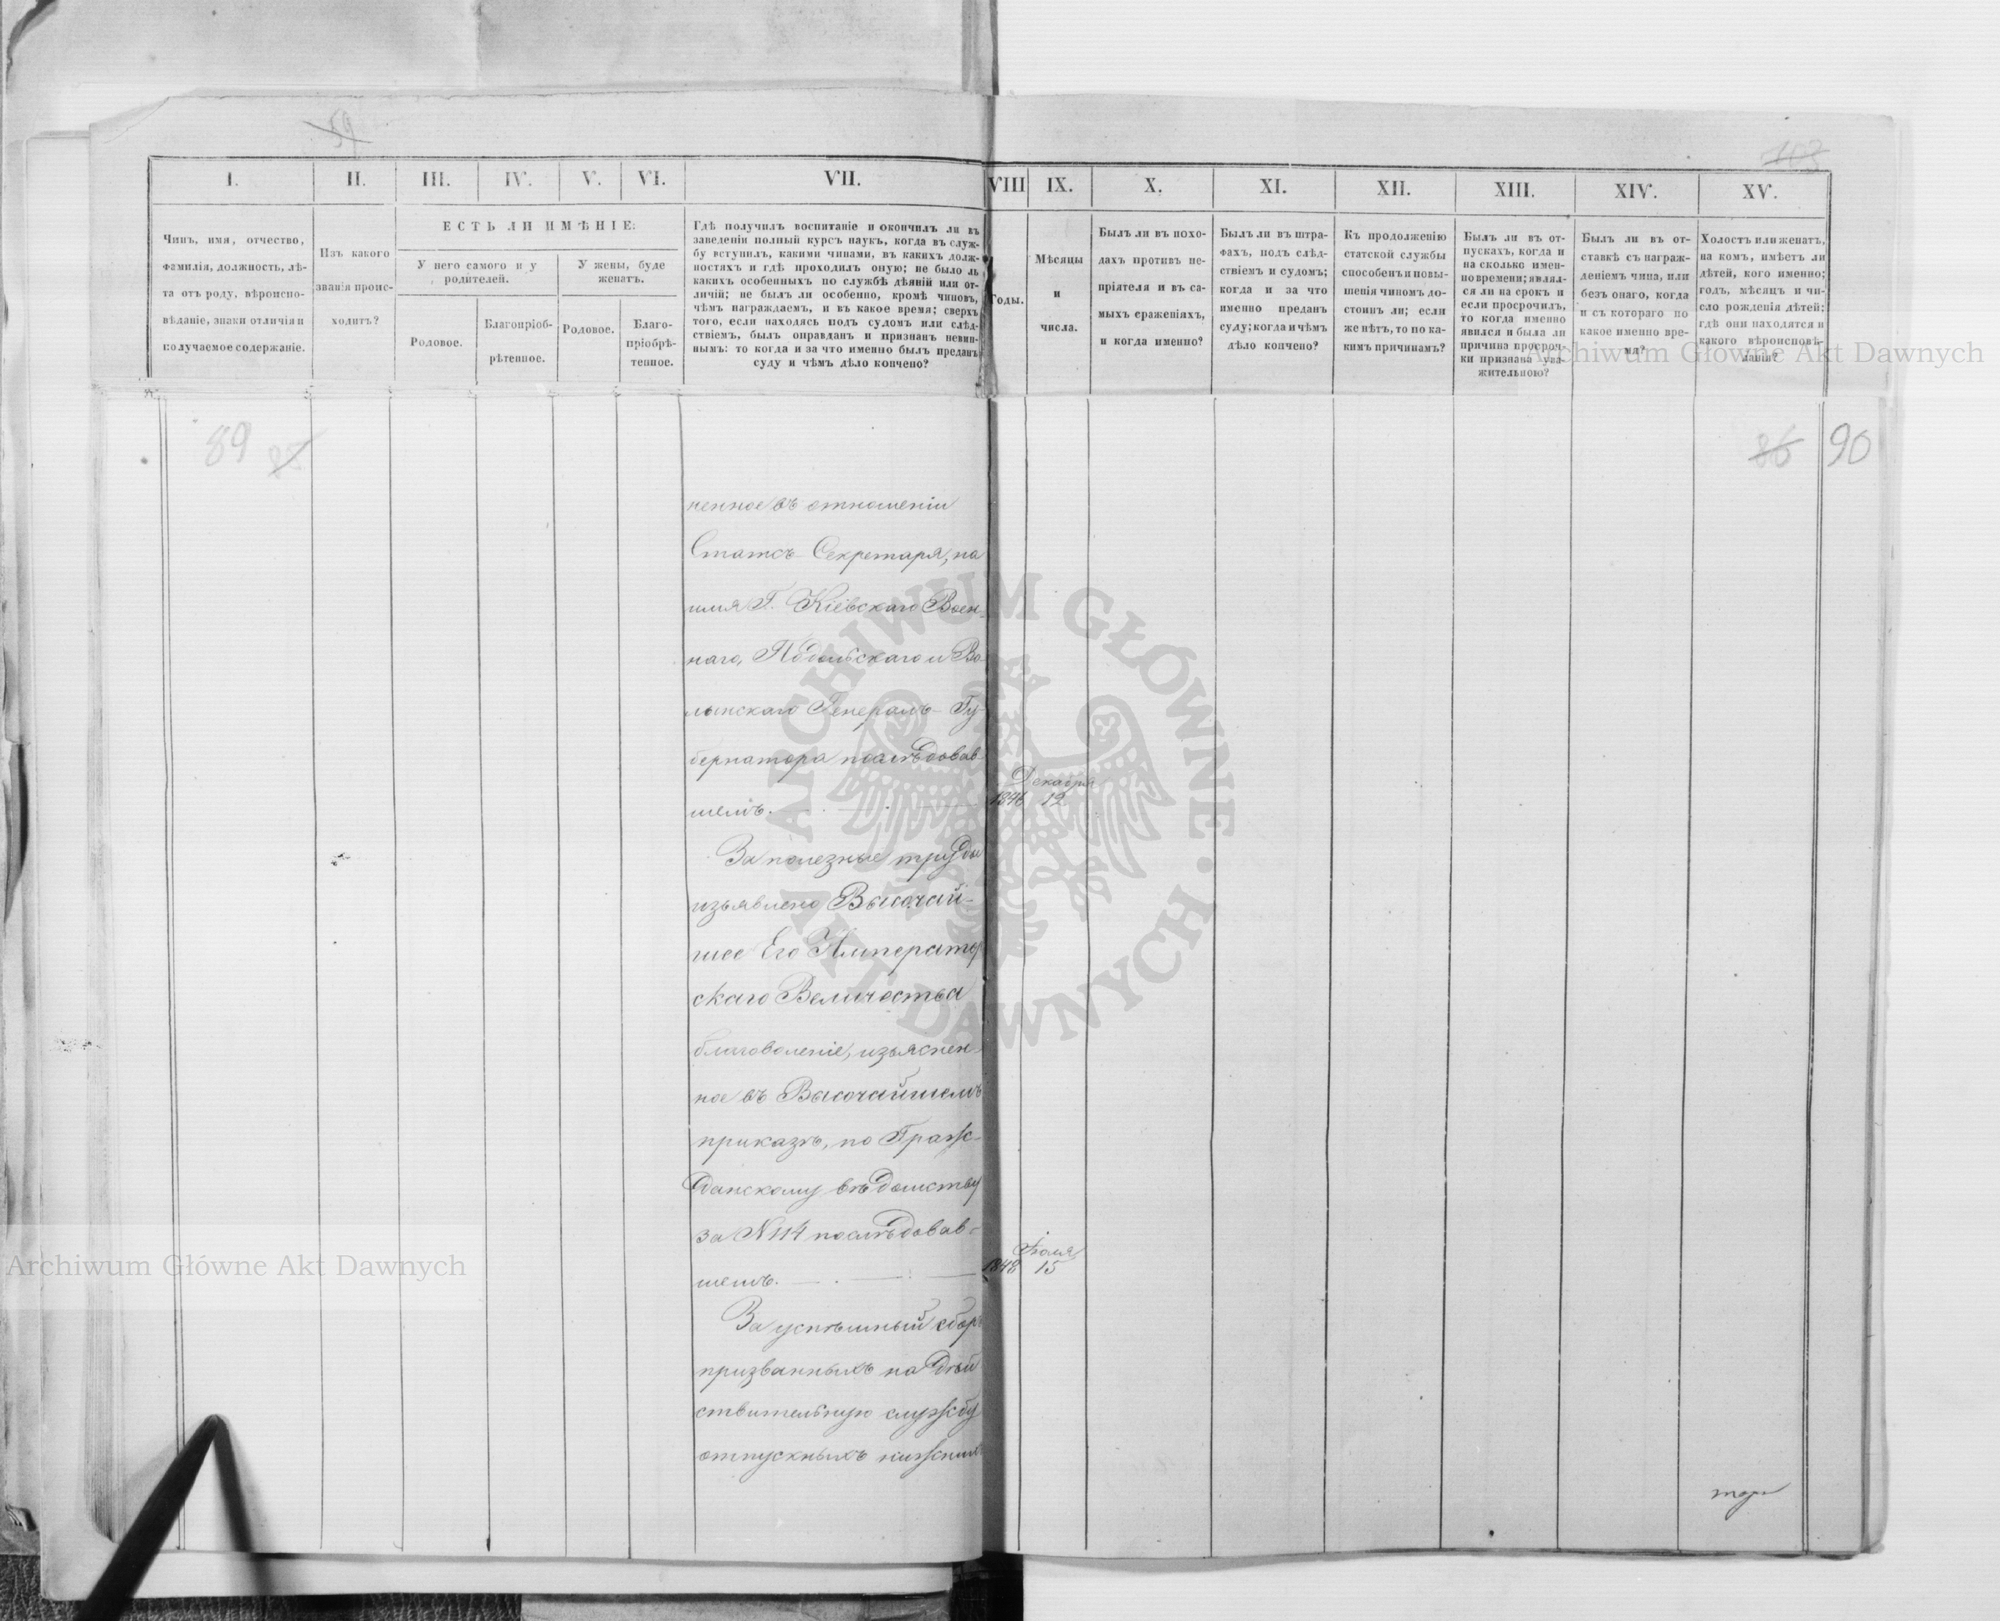 59
103
I. II. III. IV. V. VI. VII. VIII IX. X. XI. XII. XIII. XIV. XV.
Чинъ, имя, отчество,
фамилія, должность, лѣ-
та отъ роду, вѣроиспо-
вѣданіе, знаки отличія и
получаемое содержаніе.
Изъ какого
званія проис-
ходитъ?
ЕСТЬ ЛИ ИМѢНІЕ:
У него самого и у
родителей.
У жены, буде
женатъ.
Родовое.
Благопріоб-
рѣтенное.
Родовое.
Благо-
пріобрѣ-
тенное.
Гдѣ получилъ воспитаніе и окончилъ ли въ
заведеніи полный курсъ наукъ, когда въ служ-
бу вступилъ, какими чинами, въ какихъ долж-
ностяхъ и гдѣ проходилъ оную; не было ль
какихъ особенныхъ по службѣ дѣяній или от-
личій; не былъ ли особенно, кромѣ чиновъ,
чѣмъ награждаемъ, и въ какое время; сверхъ
того, если находясь подъ судомъ или слѣд-
ствіемъ, былъ оправданъ и признанъ невин-
нымъ: то когда и за что именно былъ преданъ
суду и чѣмъ дѣло кончено?
Годы.
Мѣсяцы
и
числа.
Былъ ли въ похо-
дахъ противъ не-
пріятеля и въ са-
мыхъ сраженіяхъ,
и когда именно?
Былъ ли въ штра-
фахъ, подъ слѣд-
ствіемъ и судомъ;
когда и за что
именно преданъ
суду; когда и чѣмъ
дѣло кончено?
Къ продолженію
статской службы
способенъ и повы-
шенія чиномъ до-
стоинъ ли; если
же нѣтъ, то по ка-
кимъ причинамъ?
Былъ ли въ от-
пускахъ, когда и
на сколько имен-
но времени; являл-
ся ли на срокъ и
если просрочилъ,
то когда именно
явился и была ли
причина просроч-
ки признана ува-
жительною?
Былъ ли въ от-
ставкѣ съ награж-
деніемъ чина, или
безъ онаго, когда
и съ котораго по
какое именно вре-
мя?
Холостъ или женатъ,
на комъ, имѣетъ ли
дѣтей, кого именно;
годъ, мѣсяцъ и чи-
сло рожденія дѣтей;
гдѣ они находятся и
какого вѣроисповѣ-
данія?
Archiwum Główne Akt Dawnych
89
86 90
ненное въ отношеніи
Статсъ Секретаря, на
имя Г. Кіевскаго Воен-
наго, Подольскаго и Во-
лынскаго Генералъ-Гу-
бернатора последовав-
шемъ.
Декабря
1846 12
За полезные труды
изъявлено Высочай-
шее Его Император
скаго Величества
благоволеніе, изъяснен-
ное въ Высочайшемъ
приказѣ, по Граж-
данскому вѣдомству
за N 114 послѣдовав-
шемъ.
Іюля
1848 15
За успѣшный сборъ
призванныхъ на дѣй
ствительную службу
отпускныхъ нижнихъ
ARCHIWUM GŁÓWNE AKT DAWNYCH
Archiwum Główne Akt Dawnych